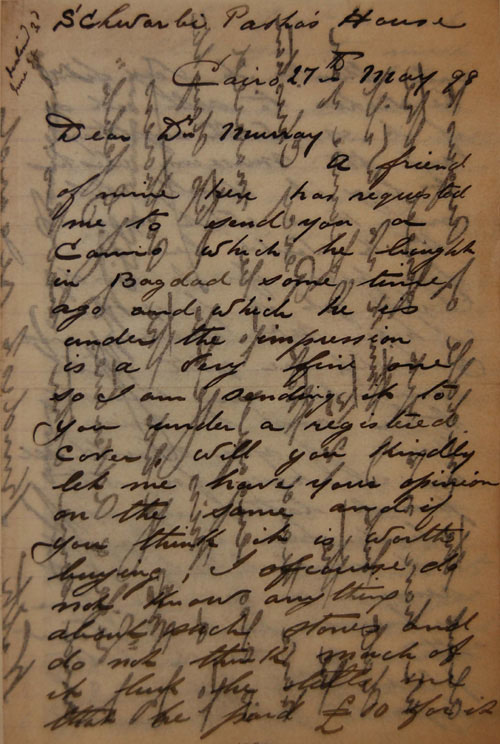 Pasha's House
Cairo 27th May 98
Dear Dr Murray
a friend
of mine here has requested
me to send you a
Cameo which he bought
in Bagdad some time
ago and which he is
under the impression
is a very fine one
so I am sending it to
you under a registered
cover, will you kindly
let me have your opinion
on the same and if
you think it is worth
buying, I ofcourse do
not know anything
about such stones and
do not think much of
it but he tells me
that he paid £ 10 for it